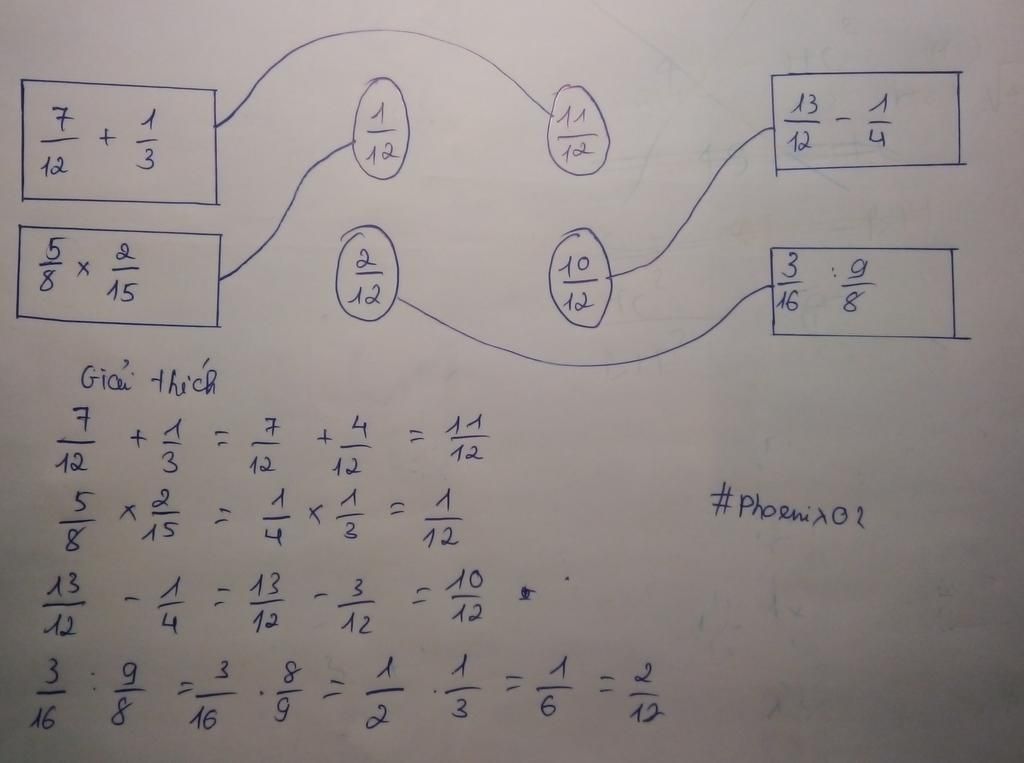 7/12 + 1/3
1/12
11/12
13/12 - 1/4
5/8 × 2/15
2/12
10/12
3/16 : 9/8
Giải thích
7/12 + 1/3 = 7/12 + 4/12 = 11/12
5/8 × 2/15 = 1/4 × 1/3 = 1/12
#Phoenix02
13/12 - 1/4 = 13/12 - 3/12 = 10/12
3/16 : 9/8 = 3/16 . 8/9 = 1/2 . 1/3 = 1/6 = 2/12